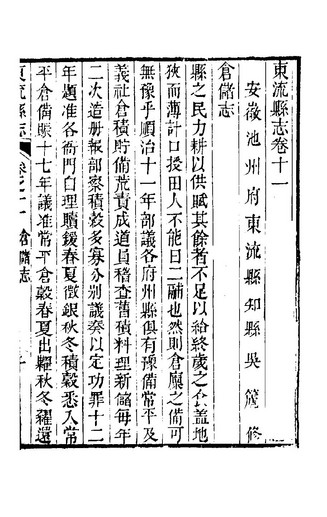 東流縣志卷十一
安徽池州府東流縣知縣吳篪修
倉儲志
縣之民力耕以供賦其餘者不足以給終歲之食蓋地
狹而薄計口授田人不能日二鬴也然則倉廩之備可
無豫乎順治十一年部議各府州縣俱有豫備常平及
義社倉積貯備荒責成道員稽查舊積料理新儲每年
二次造册報部察積穀多寡分别議奏以定功罪十二
年題准各衙門自理贖鍰春夏徵銀秋冬積穀悉入常
平倉備賑十七年議准常平倉穀春夏出糶秋冬糴還
東流縣志 卷之十一 倉儲志 一